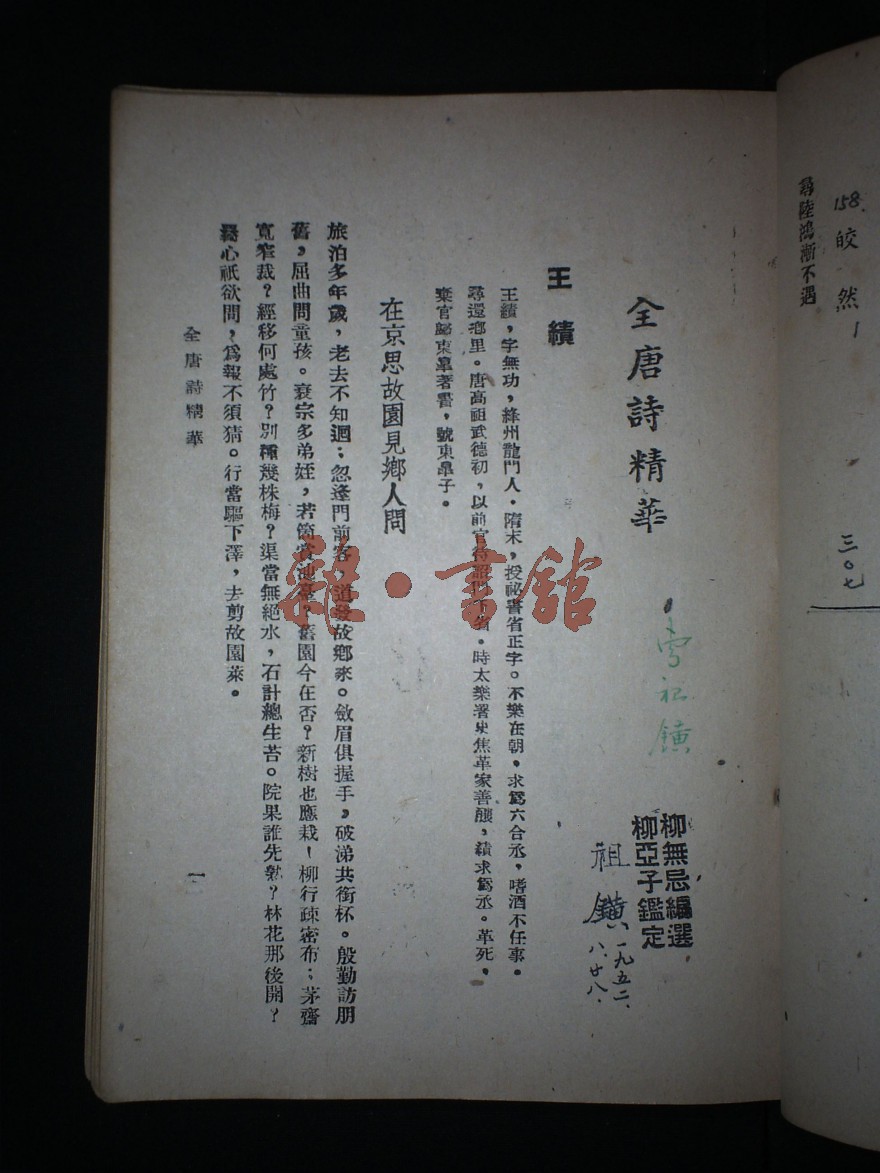 158 皎然
尋陸鴻漸不遇
三〇七
全唐詩精華
祖鐄
柳無忌編選
柳亞子鑑定
祖鐄
一九五二、
八、廿八、
王績
王績，字無功，絳州龍門人。隋末，授祕書省正字。不樂在朝，求爲六合丞，嗜酒不任事。
尋還鄉里。唐高祖武德初，以前官待詔門下省。時太樂署史焦革家善釀，績求爲丞。革死，
棄官歸東臯著書，號東臯子。
在京思故園見鄉人問
旅泊多年歲，老去不知迴；忽逢門前客，道發故鄉來。斂眉俱握手，破涕共銜杯。殷勤訪朋
舊，屈曲問童孩。衰宗多弟姪，若箇賞池臺？舊園今在否？新樹也應栽！柳行疎密布；茅齋
寬窄裁？經移何處竹？別種幾株梅？渠當無絕水，石計總生苔。院果誰先熟？林花那後開？
羇心祇欲問，爲報不須猜。行當驅下澤，去剪故園萊。
全唐詩精華
一
雜·書館